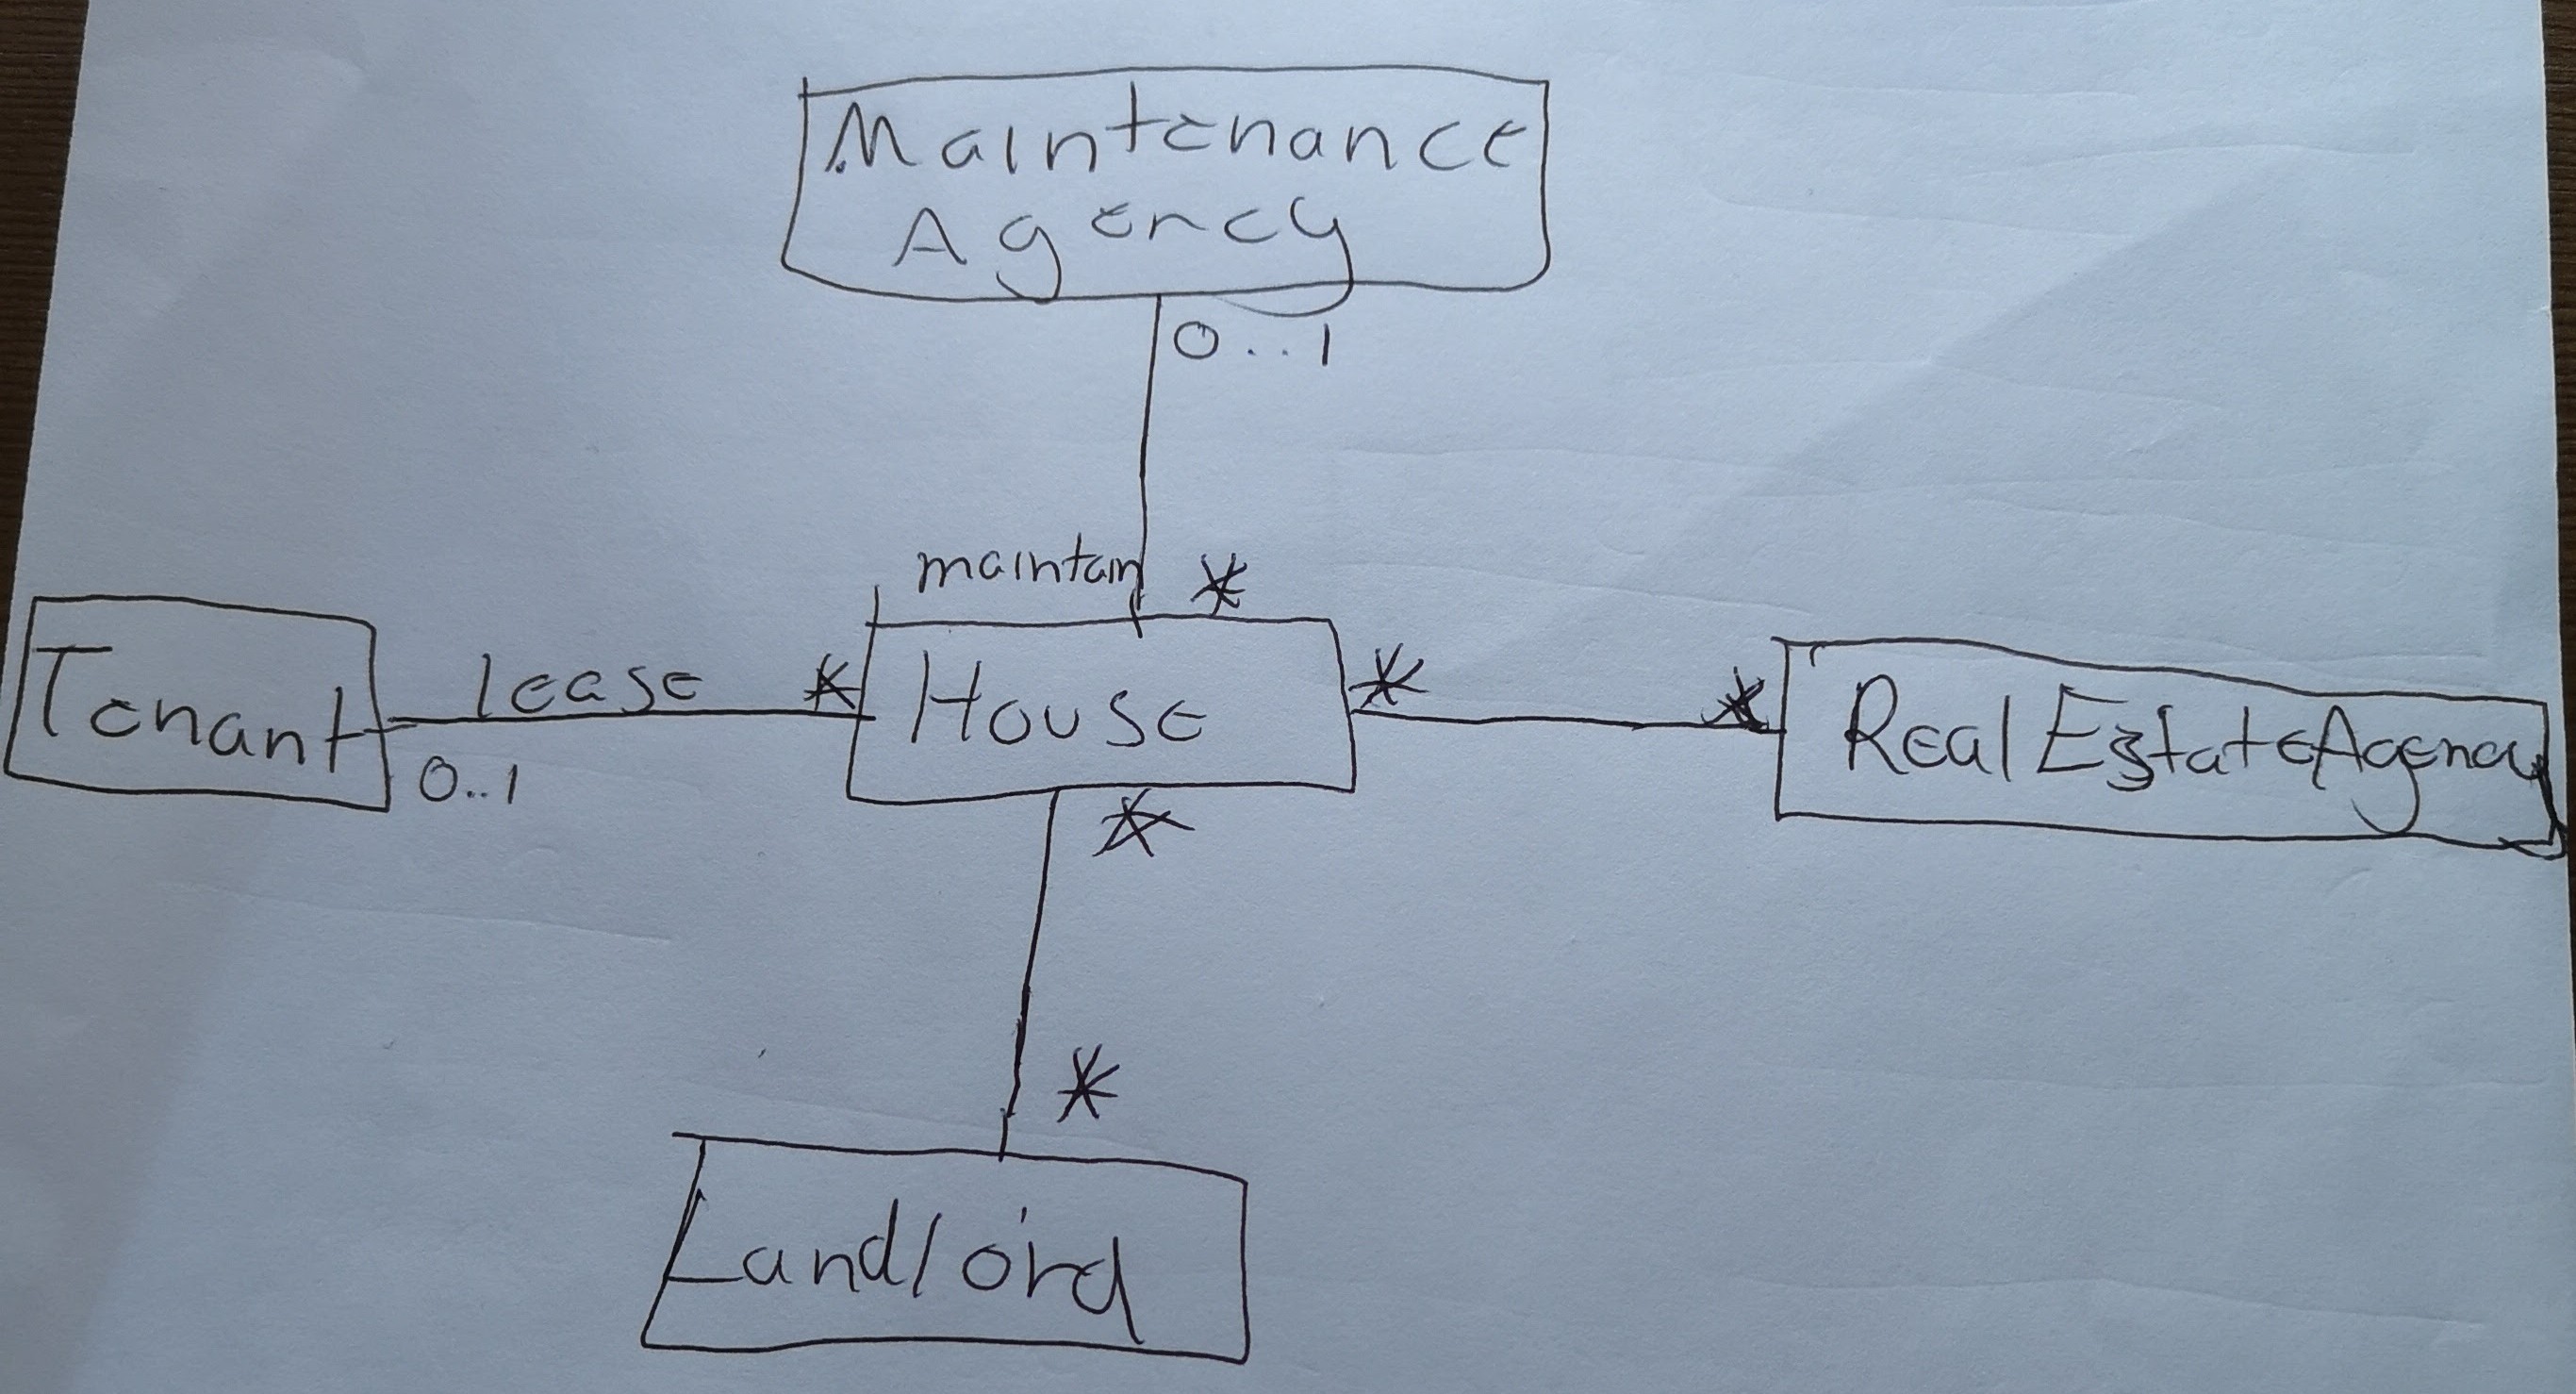 Maintenance
Agency
0..1
maintain *
Tenant
lease
0..1
*
House
*
*
RealEstateAgency
*
*
Landlord